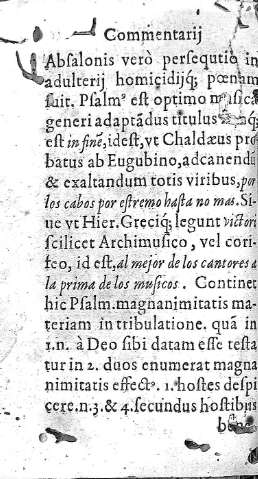 Commentarij
Absalonis verò persequtio in
adulterij homicidijq; pœnam
fuit. Psalmꝰ est optimo musicæ
generi adaptãdus titulus
est in finẽ, idest, vt Chaldæus pro
batus ab Eugubino, adcanendũ
& exaltandum totis viribus, por
los cabos por estremo hasta no mas. Si-
ue vt Hier. Greciq; legunt victori
scilicet Archimusico, vel cori-
feo, id est, al mejor de los cantores a
la prima de los musicos. Continet
hic Psalm. magnanimitatis ma-
teriam in tribulatione. quã in
1.n. à Deo sibi datam esse testa
tur in 2. duos enumerat magna
nimitatis effectꝰ. 1.ꝰ hostes despi
cere.n.3.& 4. secundus hostibus